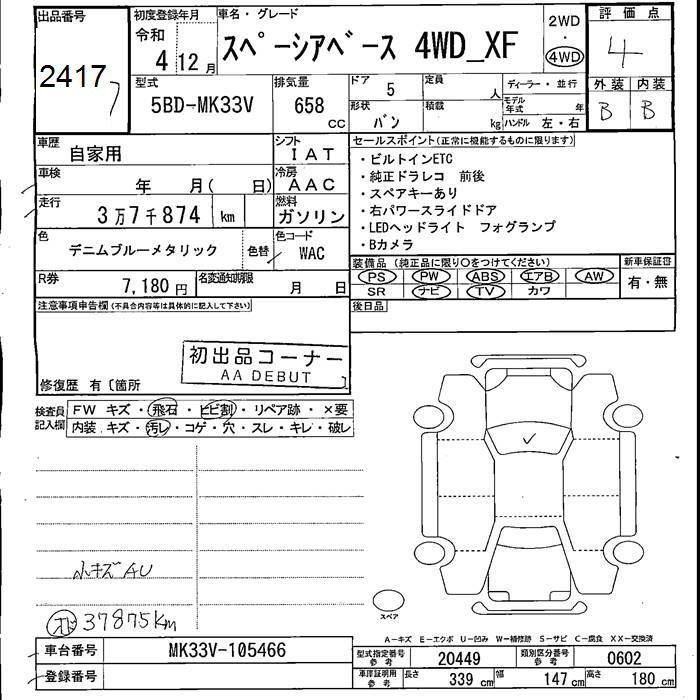 出品番号
2417
初度登録年月
令和
4 12月
車名・グレード
スペーシアベース 4WD_XF
2WD
・
4WD
評価点
4
外装 内装
B B
型式
5BD-MK33V
排気量
658 cc
ドア 5
定員 人
形状 バン
積載 kg
ディーラー・並行
モデル年式 年
ハンドル 左・右
車歴
自家用
シフト
IAT
車検
年 月( 日)
冷房
AAC
走行
3万7千874 km
燃料
ガソリン
色
デニムブルーメタリック
色替
色コード
WAC
R券
7,180円
名変通知期限
月 日
セールスポイント(正常に機能するものに限ります)
・ビルトインETC
・純正ドラレコ 前後
・スペアキーあり
・右パワースライドドア
・LEDヘッドライト フォグランプ
・Bカメラ
装備品 (純正品に限り○をつけてください)
PS PW ABS エアB AW
SR ナビ TV カワ
新車保証書
有・無
後日品
注意事項申告欄(不具合内容等は具体的に記入して下さい)
初出品コーナー
AA DEBUT
修復歴 有〔箇所
検査員記入欄
FW キズ・飛石・ヒビ割・リペア跡・×要
内装.キズ・汚レ・コゲ・穴・スレ・キレ・破レ
小キズAU
37875km
スペア
A-キズ E-エクボ U-凹み W-補修跡 S-サビ C-腐食 XX-交換済
車台番号
MK33V-105466
登録番号
型式指定番号参考
20449
類別区分番号参考
0602
車庫証明用参考
長さ 339 cm 幅 147 cm 高さ 180 cm